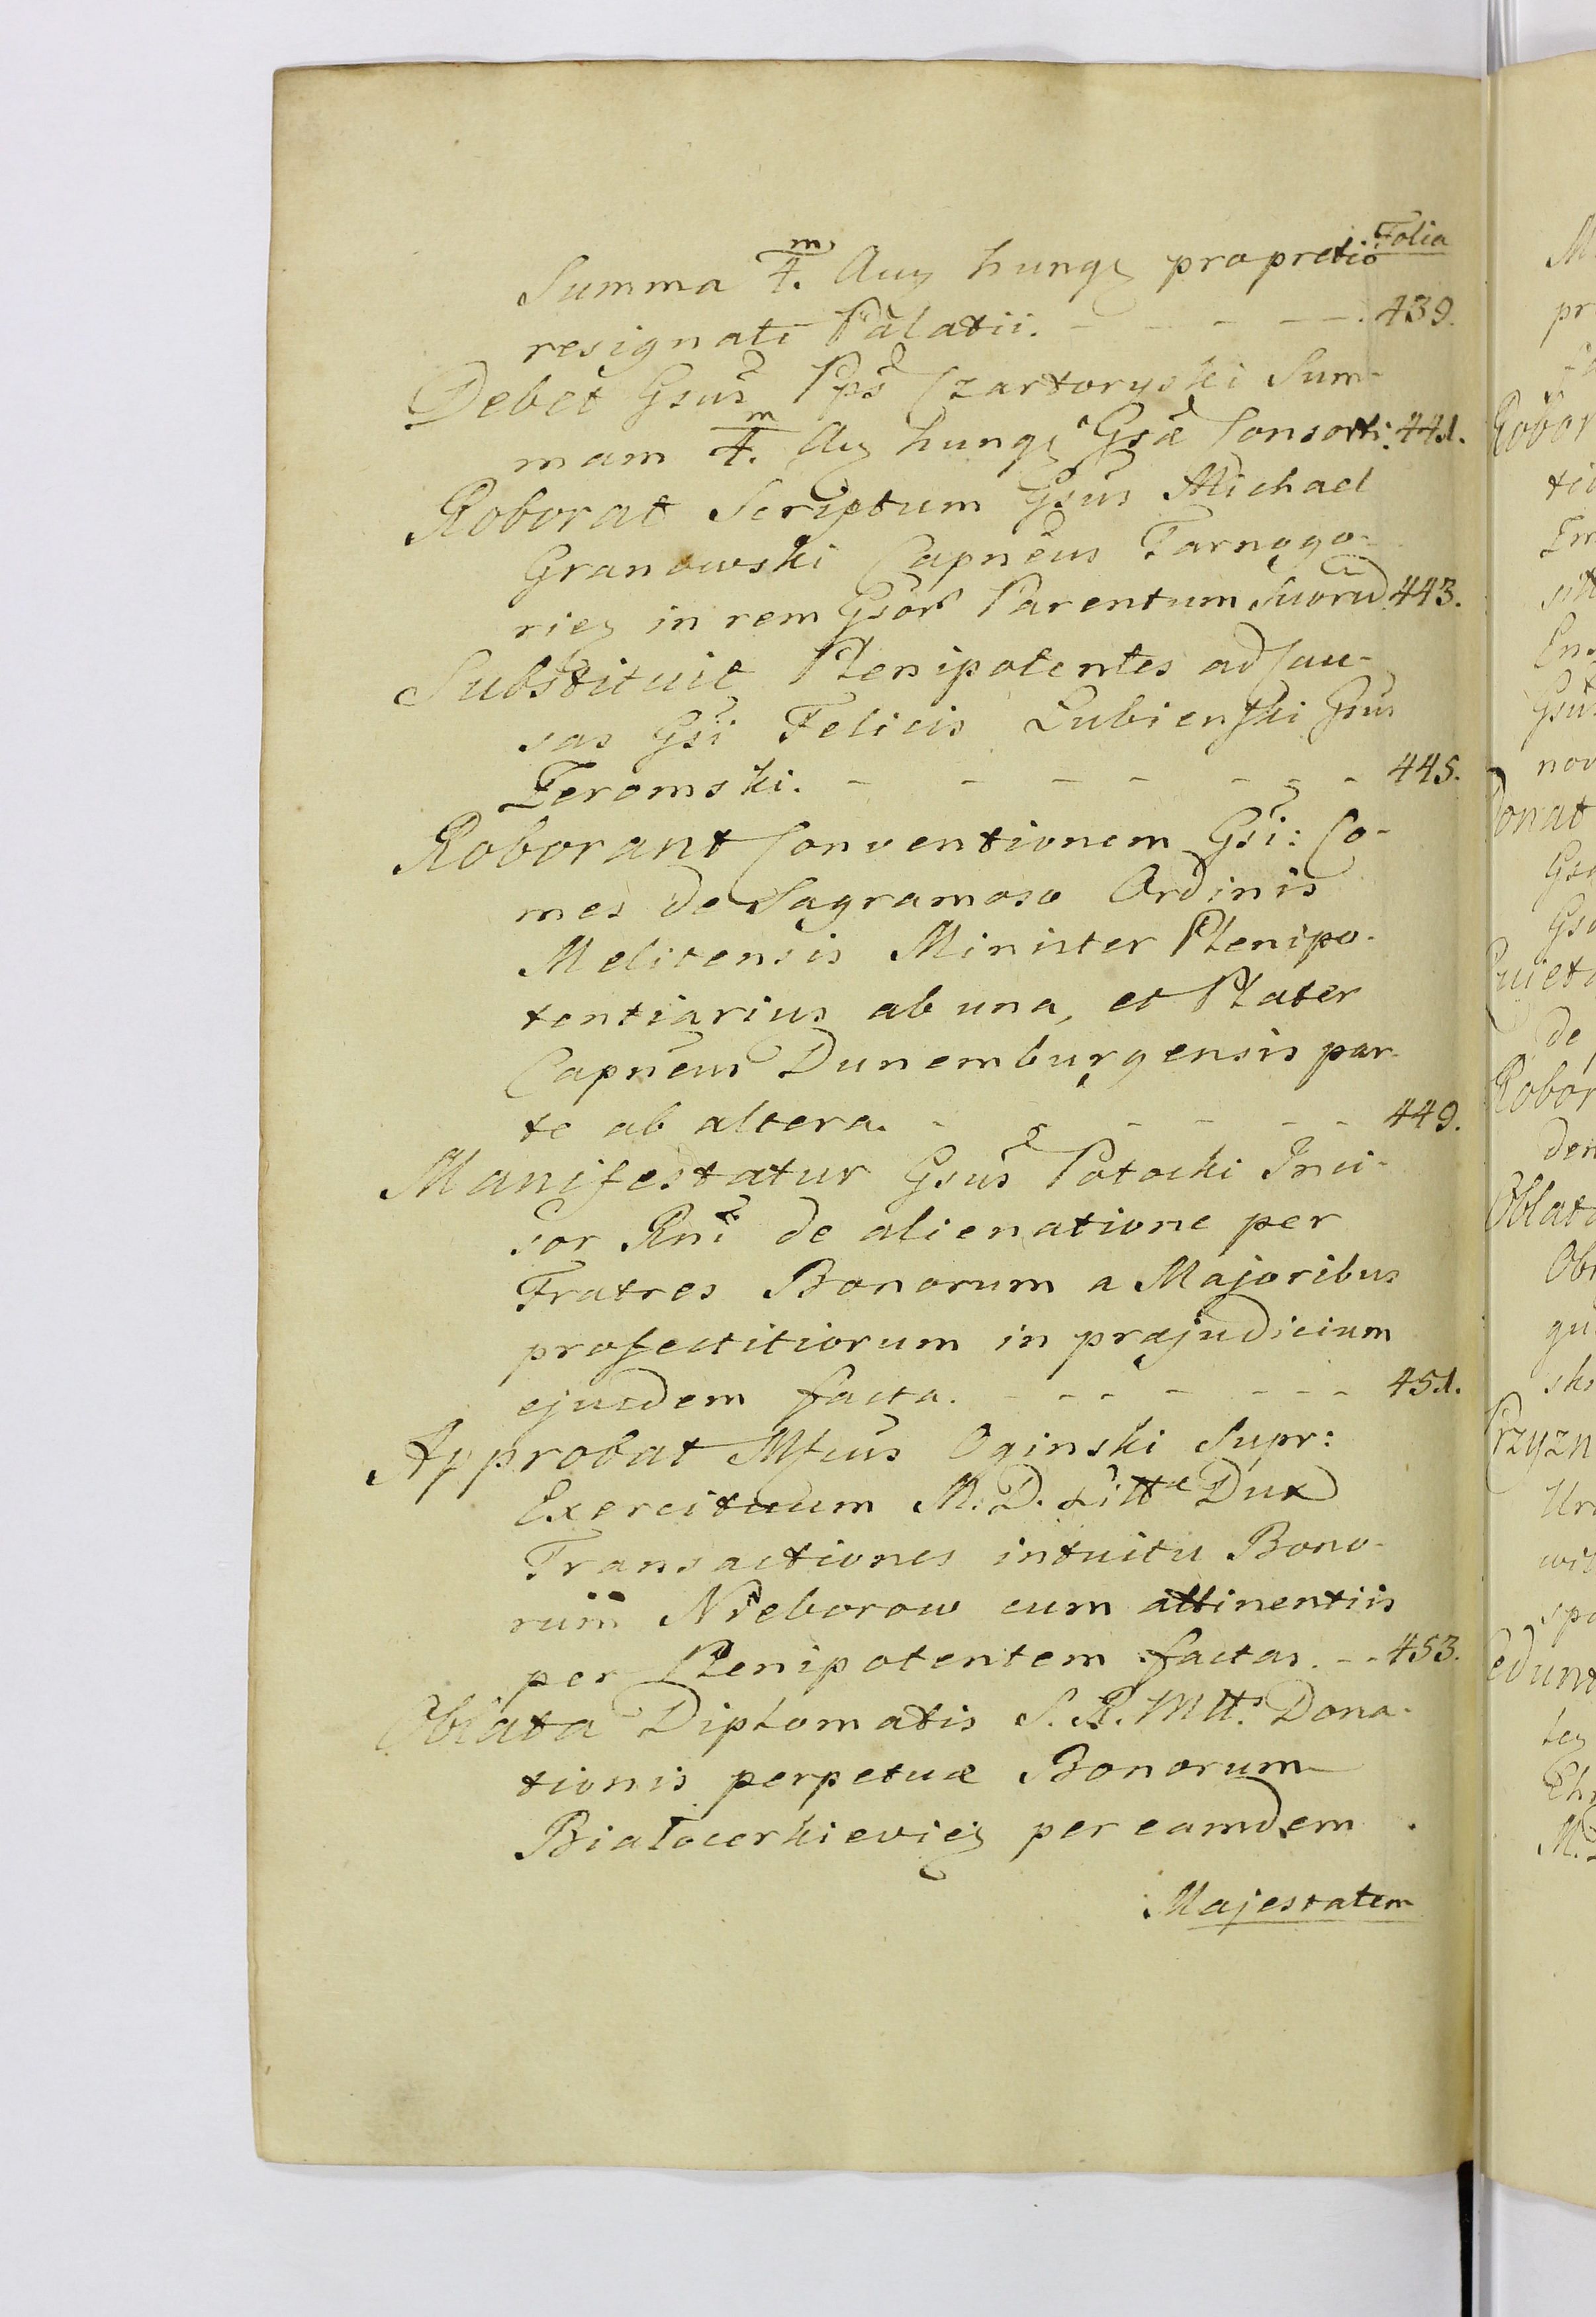 Folia
Summa 4.m Aur hungr pro pretio
resignati Palatii. - - - - 439.
Debet Gsus Pps Czartoryski Sum-
mam 4.m Aur hungr Gsæ Consorti. 441.
Roborat Scriptum Gsus Michael
Granowski Capneus Tarnogo-
rien in rem Gsor Parentum Suorū 443.
Substituit Plenipotentes ad Cau-
sas Gsi Felicis Łubienski Gsus
Zeromski. - - - - - - - 445.
Roborant Conventionem Gsi: Co-
mes de Sagramoso Ordinis
Melitensis Minister Plenipo-
tentiarius ab una, et Plater
Capneus Dunemburgensis par-
te ab altera. - - - - - - 449.
Manifestatur Gsus Potocki Inci-
sor Rni de alienatione per
Fratres Bonorum a Majoribus
profectitiorum in præjudicium
ejusdem facta. - - - - - - - 451.
Approbat Mfcus Oginski Supr:
Exercituum M. D. Litt Dux
Transactiones intuitu Bono-
rum Nieborow cum attinentiis
per Plenipotentem factas. - - 453.
Oblata Diplomatis S. R. Mtts Dona-
tionis perpetuæ Bonorum
Białocerkievien per eamdem
Majestatem